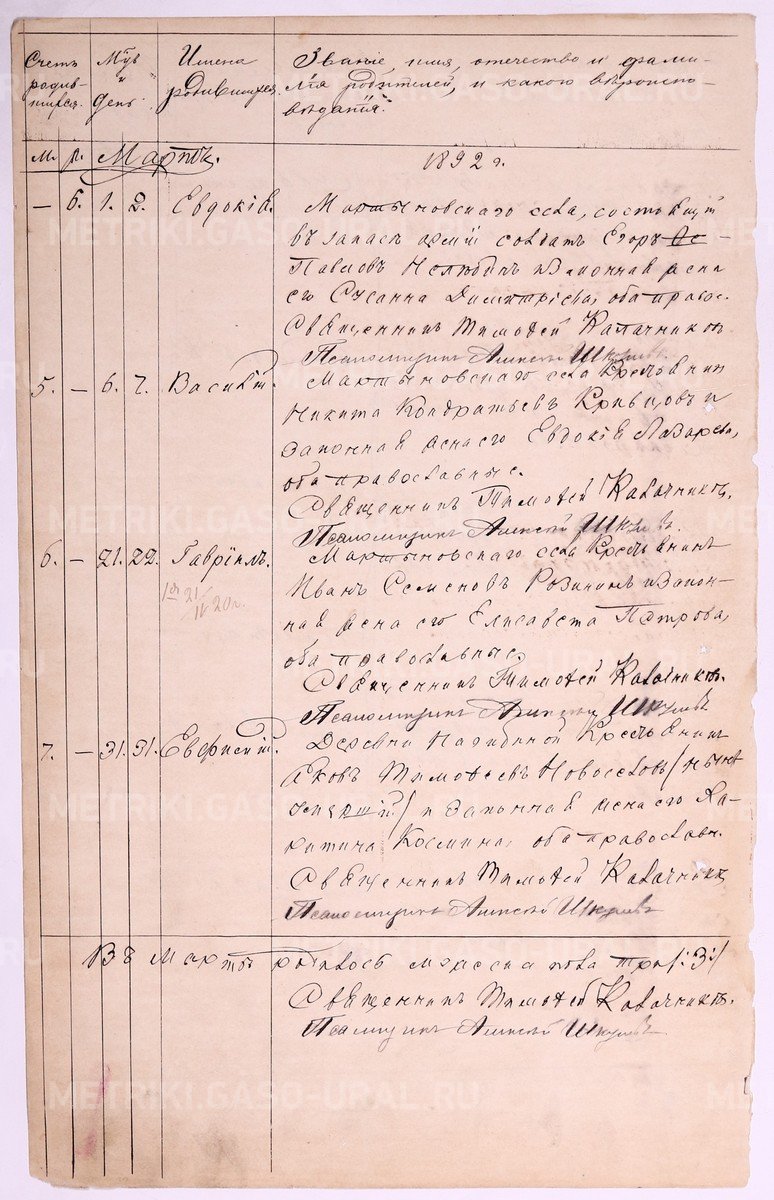 Счетъ родив-шихся.
Мѣс. и день.
Имена родившихся.
Званіе, имя, отчество и фами-
лія родителей, и какого вѣроиспо-
вѣданія.
М. ж. Мартъ. 1892 г.
— 6. 1. 2. Евдокія. Мартыновскаго села, состоящій
въ запасѣ арміи солдатъ Егоръ Ѳе-
Павловъ Нелюбинъ и законная жена
его Сусанна Димитріева, оба правос.
Священникъ Тимоѳей Калачниковъ
Псаломщикъ Алексѣй
5. — 6. 7. Василій. Мартыновскаго села крестьянинъ
Никита Кондратьевъ Кривцовъ и
законная жена его Евдокія Лазарева,
оба православные.
Священникъ Тимоѳей Калачниковъ.
Псаломщикъ Алексѣй
6. — 21. 22. Гавріилъ. Мартыновскаго села крестьянинъ
Иванъ Семеновъ и закон-
ная жена его Елисавета Петрова,
оба православные.
Священникъ Тимоѳей Калачниковъ.
Псаломщикъ Алексѣй
7. — 31. 31. Евфисій. Деревни крестьянинъ
Яковъ Тимоѳеевъ Новоселовъ / нынѣ
/ и законная жена его
Космина, оба православн.
Священникъ Тимоѳей Калачниковъ
Псаломщикъ Алексѣй
Въ Мартѣ родилось мужеска пола три /:3:/
Священникъ Тимоѳей Калачниковъ.
Псаломщикъ Алексѣй
METRIKI.GASO-URAL.RU